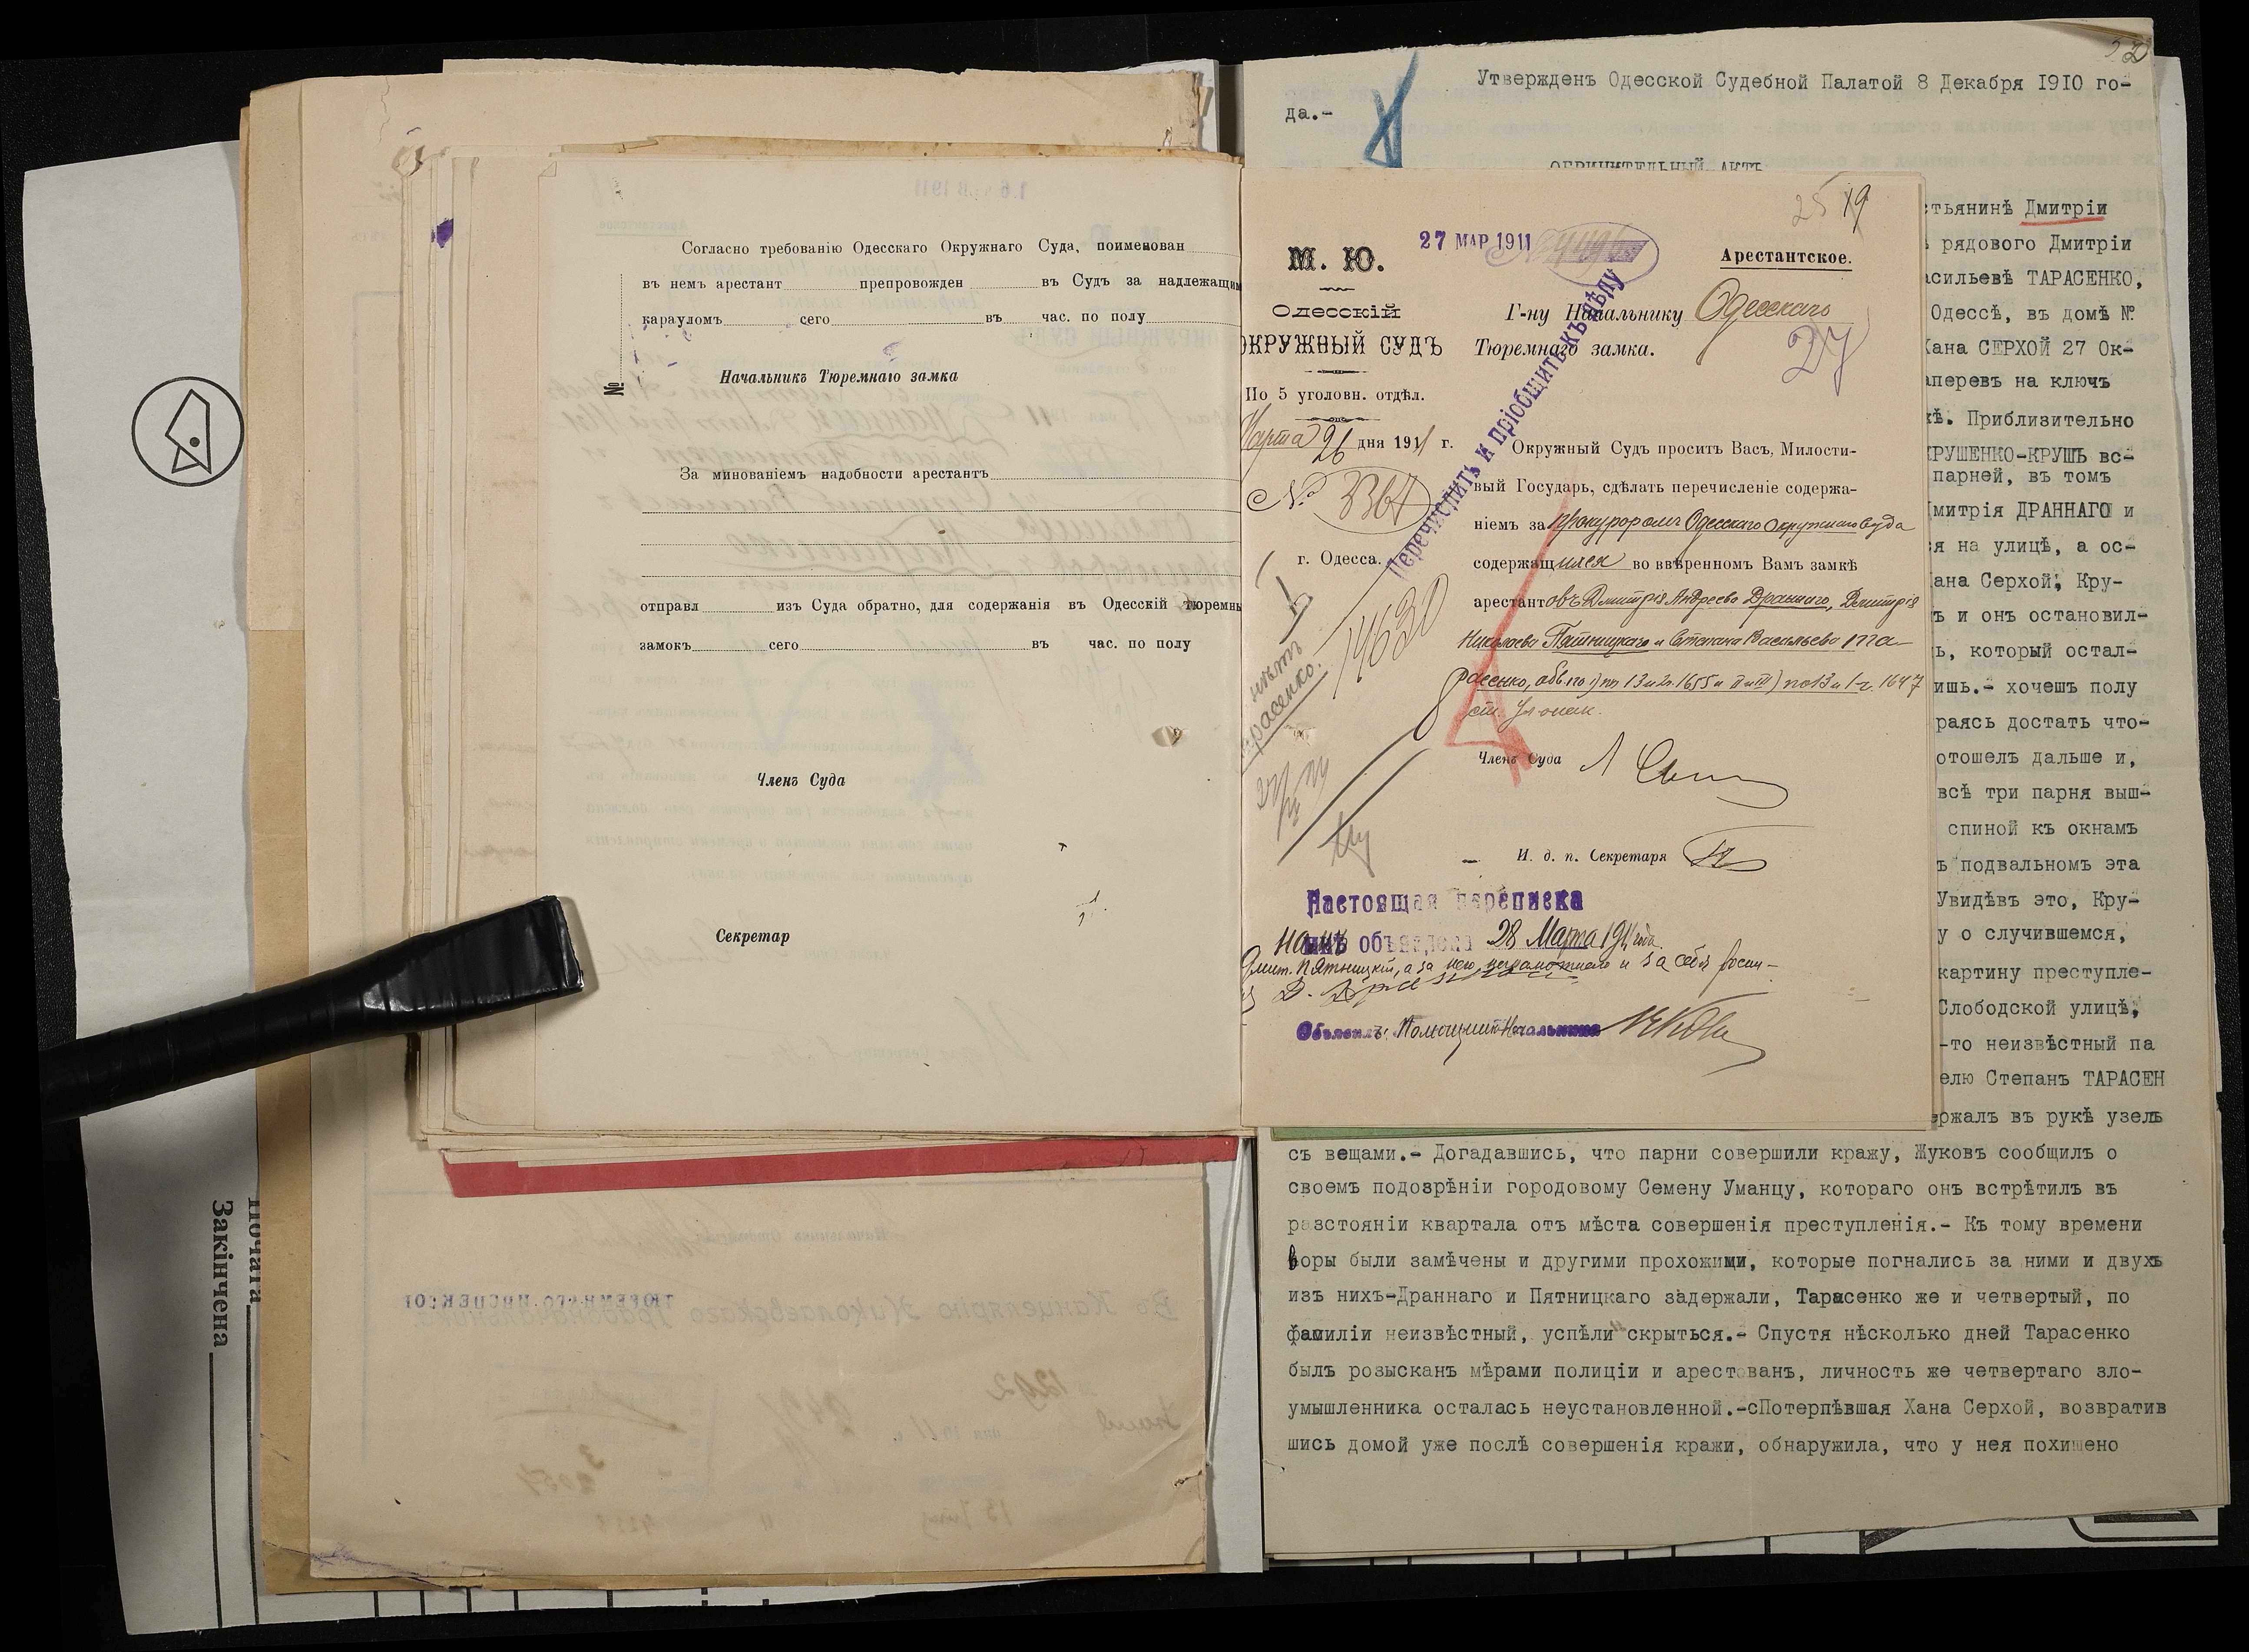 Согласно требованію Одесскаго Окружнаго Суда, поименован
въ немъ арестант препровожден въ Судъ за надлежащим
карауломъ сего въ час. по полу
№
Начальникъ Тюремнаго замка
За минованіемъ надобности арестантъ
отправл изъ Суда обратно, для содержанія въ Одесскій тюремны
замокъ сего въ час. по полу
Членъ Суда
Секретар
Почата
Закінчена
Утвержденъ Одесской Судебной Палатой 8 Декабря 1910 го-
да.-
ОБВИНИТЕЛЬНЫЙ АКТЪ
25 19
27 МАР 1911
М. Ю.
Арестантское.
Одесскій
ОКРУЖНЫЙ СУДЪ
По 5 уголовн. отдѣл.
Марта 26 дня 1911 г.
№ 3364
г. Одесса.
Г-ну Начальнику Одесскаго
Тюремнаго замка.
27
Перечислить и пріобщить къ дѣлу
Окружный Судъ проситъ Васъ, Милости-
вый Государь, сдѣлать перечисленіе содержа-
ніемъ за Прокуроромъ Одесскаго Окружнаго Суда
содержащихся во ввѣренномъ Вамъ замкѣ
арестантовъ Дмитрія Андреева Драннаго, Дмитрія
Николаева Пятницкаго и Степана Васильева Та-
расенко, обв. по 1) 13 и 2ч. 1655 и II и III) по 13 и 1 ч. 1647
ст. Улож.
14630
нѣтъ
Тарасенко.
Членъ Суда
И. д. п. Секретаря
Настоящая переписка
намъ объявлена 28 Марта 1911 года.
Дмит. Пятницкій, а за него неграмотнаго и за себя росп-
Объявилъ: Помощникъ Начальника
тьянинѣ Дмитріи
рядового Дмитріи
асильевѣ ТАРАСЕНКО,
Одессѣ, въ домѣ №
Хана СЕРХОЙ 27 Ок-
аперевъ на ключъ
кѣ. Приблизительно
КРУШЕНКО-КРУШЪ вс-
парней, въ томъ
Дмитрія ДРАННАГО и
ся на улицѣ, а ос-
Хана Серхой; Кру-
ъ и онъ остановил-
ь, который остал-
ишь.- хочешъ полу
раясь достать что-
отошелъ дальше и,
всѣ три парня выш-
спиной къ окнамъ
ъ подвальномъ эта
Увидѣвъ это, Кру-
у о случившемся,
картину преступле-
Слободской улицѣ,
-то неизвѣстный па
елю Степанъ ТАРАСЕН
ержалъ въ рукѣ узелъ
съ вещами.- Догадавшись, что парни совершили кражу, Жуковъ сообщилъ о
своемъ подозрѣніи городовому Семену Уманцу, котораго онъ встрѣтилъ въ
разстояніи квартала отъ мѣста совершенія преступленія.- Къ тому времени
воры были замѣчены и другими прохожими, которые погнались за ними и двухъ
изъ нихъ-Драннаго и Пятницкаго задержали, Тарасенко же и четвертый, по
фамиліи неизвѣстный, успѣли скрыться.- Спустя нѣсколько дней Тарасенко
былъ розысканъ мѣрами полиціи и арестованъ, личность же четвертаго зло-
умышленника осталась неустановленной.-сПотерпѣвшая Хана Серхой, возвратив
шись домой уже послѣ совершенія кражи, обнаружила, что у нея похищено